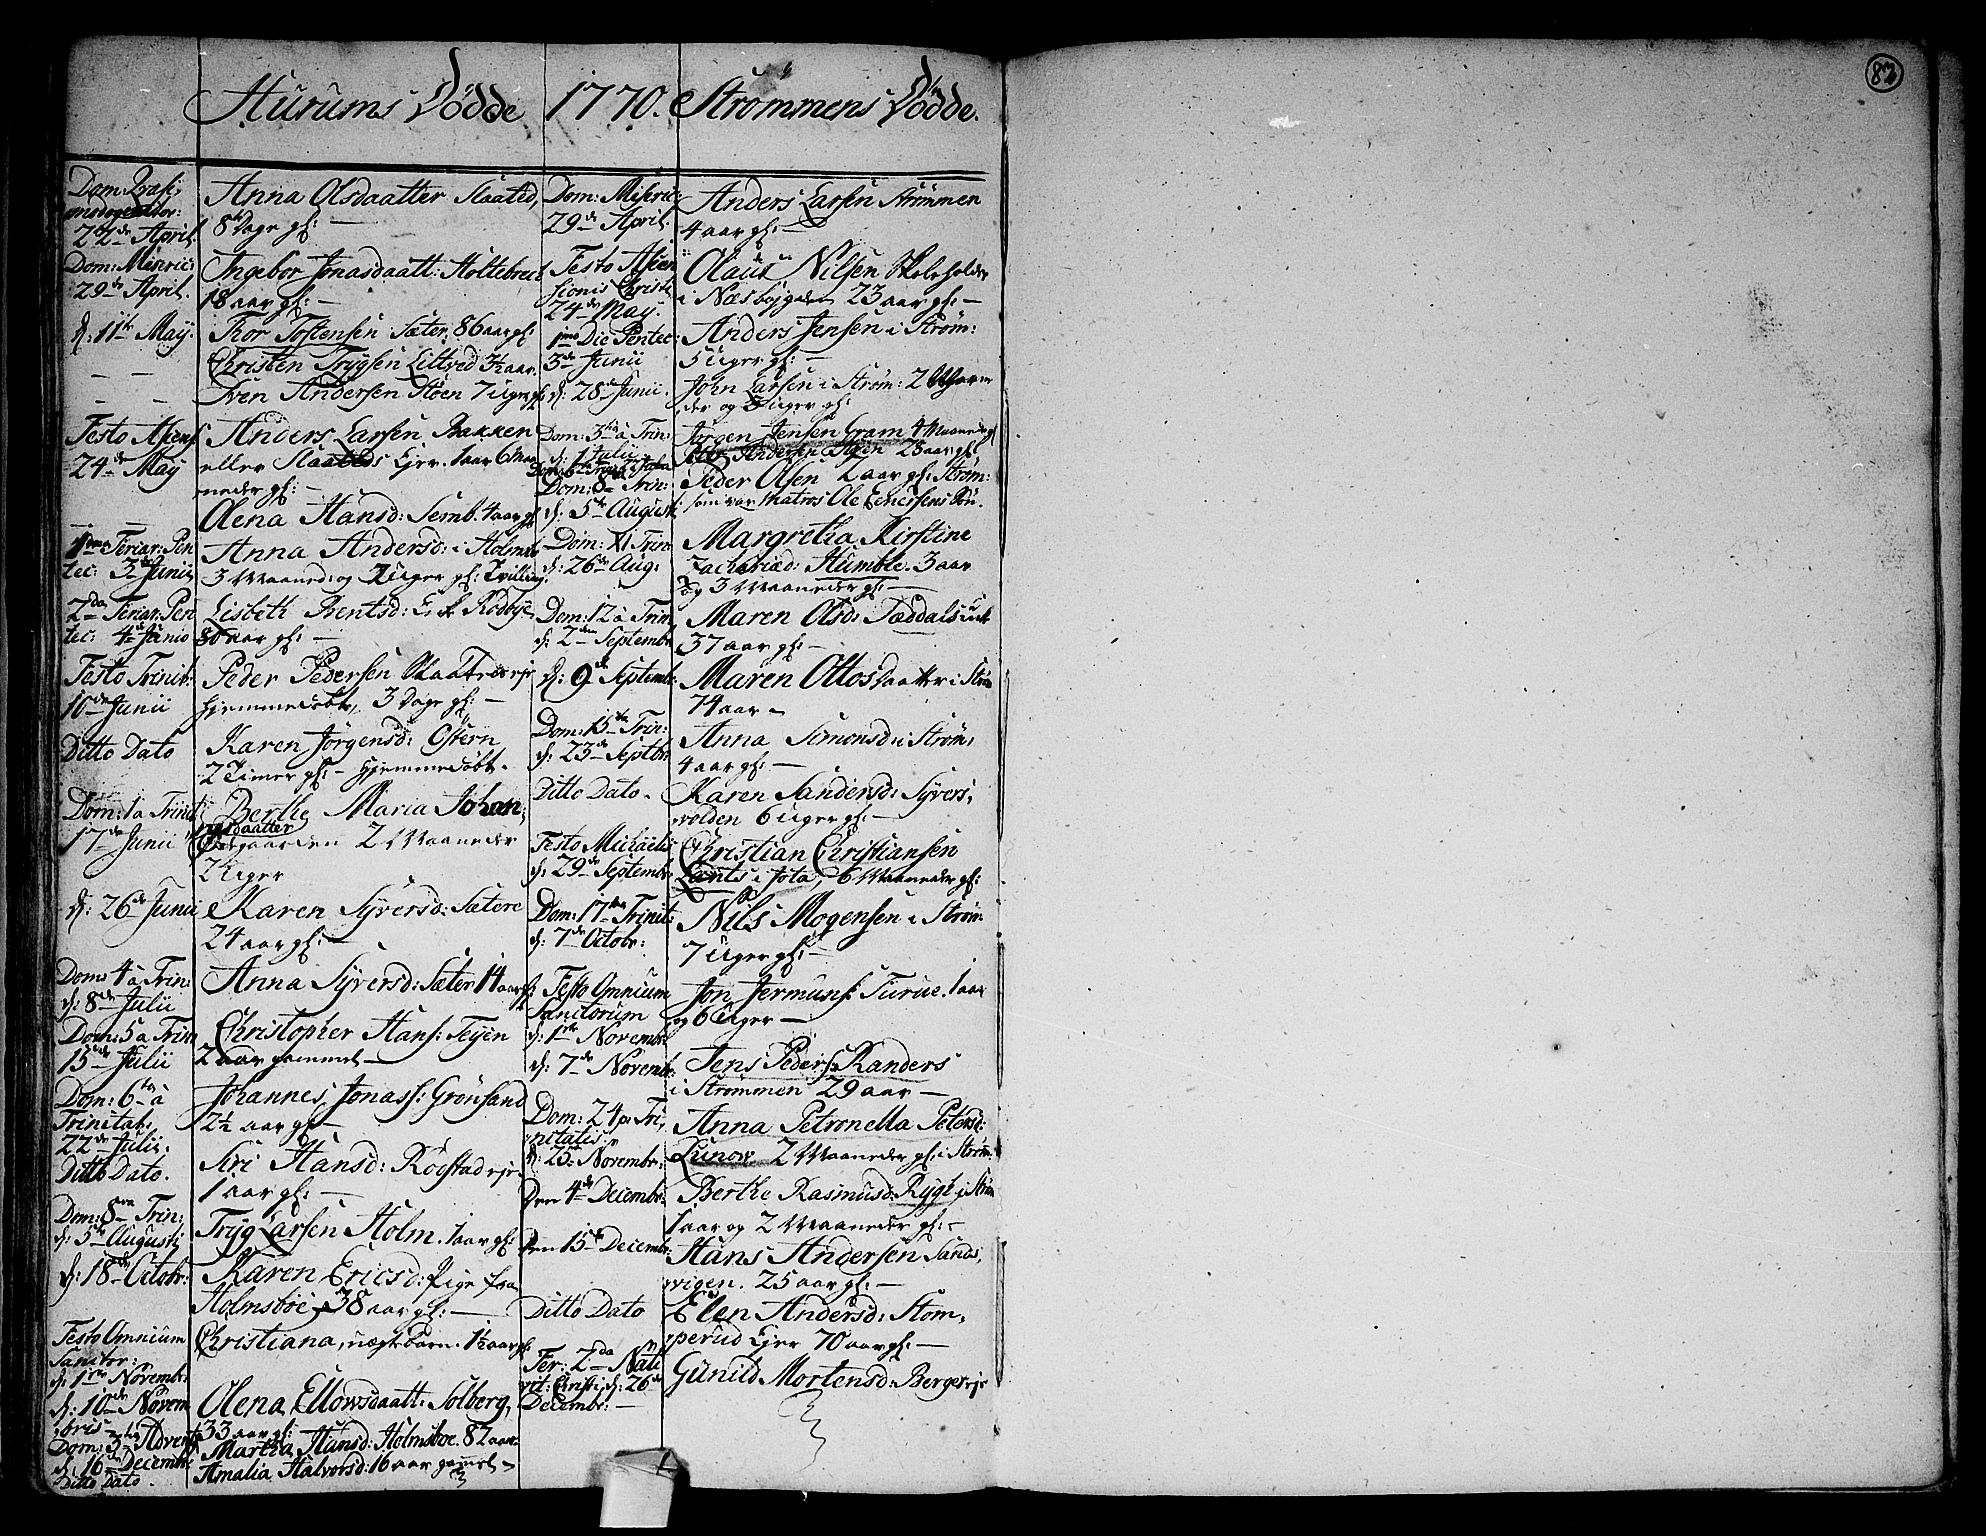 83
Hurums Dødde 1770. Strømmens Dødde.
Dom: Præsi
22de April
Anna Olsdaatter Slaated,
8te Dage gl: —
Dom: Miseric:
29de April.
Ingebor Jonasdaatt: Holtebrech
18 aar gl: —
d: 11te May.
Thor Tostensen Sæter, 86 aar gl:
— —
Christen Trygsen Littved 3½ aar.
— —
Sven Andersen Støen 7 Uger gl:
Festo Ascens
24de May
Anders Larsen Bakken
eller Slaateds Ejer. 1 aar 6 Maa
neder gl: —
— —
Olena Hansd: Semb. 4 aar gl:
1ma Feriar: Pen
tec: 3de Junii
Anna Andersd: i Holms
3 Maaned: og 3 Uger gl: Tvilling.
2da Feriar: Pen
tec: 4de Junio
Lisbeth Bentsd: Rødbye
80 aar gl: —
Festo Trinit:
10de Junii
Peder Pedersen
Hjemmedøbt, 3 Dage gl: —
Ditto Dato
Karen Jørgensd: Østern
2 Timer gl: — Hjemmedøbt.
Dom: 1 a Trinit
17de Junii
Berthe Maria Johan,
nesdaatter
gaarden 2 Maaneder
2 Uger
d: 26de Junii
Karen Syversd: Sætere
24 aar gl: —
Dom: 4 a Trin:
d: 8de Julii
Anna Syversd: Sæter 14 aar gl:
Dom: 5 a Trin
15de Julii
Christopher Hans: Tejen
2 aar gammel —
Dom: 6ta a
Trinitat:
22de Julii.
Johannes Jonass: Grønsand
2½ aar gl —
Ditto Dato.
Siri Hansd: Røgstad eje
1 aar gl: —
Dom: 8va Trin:
d: 5te Augusti
Tryg Larsen Holm. 1 aar gl:
d: 18de Octobr:
Karen Ericsd: Pige fra
Holmsboe 38 aar gl: —
Festo Omnium
Sanctor:
d: 1ste Novembr:
Christiana, uægte Barn. 1½ aar gl:
d: 10de Novem
bris —
Olena Ellowsdaatt: Solberg,
33 aar gl:
Dom: 3tia Advent
d: 16de Decembr
Martha Hansd: Holmsboe. 82 aar
Ditto Dato.
Amalia Halvorsd: 16 aar gammel —
Dom: Miseric:
29de April.
Anders Larsen Strømmen
4 aar gl: —
Festo Ascen
sionis Christi
24de May.
Olaus Nilsen Skoleholder
i Næsbøjgden 23 aar gl: —
1mo Die Pentec:
3de Junii
Anders Jensen i Strøm:
5 Uger gl: —
d: 28de Junii.
John Larsen i Strøm: 2 Maane
der og 3 Uger gl:
Dom: 3tia a Trin:
d: 1 Julii
Jørgen Jensen Gram 4 Maaned gl
Andersen 28 aar gl:
Dom: 8va Trin:
d: 5te Augusti
Peder Olsen 2 aar gl: Strøm:
som var Matros Ole Enersens Søn.
Dom: XI Trin
d: 26de Aug:
Margretha Kirstine
Zachariæd: Humble. 3 aar
og 3 Maaneder gl: —
Dom: 12 a Trin
d: 2den Septembr
Maren Olsd: Tøddalsund
37 aar gl: —
d: 9de Septembr:
Maren Ottosdaatter i Strøm
74 aar —
Dom: 15ta Trin:
d: 23de Septbr:
Anna Simonsd: i Strøm:
4 aar gl: —
Ditto Dato.
Karen Sandersd: Syvers,
volden 6 Uger gl: —
Festo Michaelis
d: 29de Septembr
Christian Christiansen
Lants i Jota, 6 Maaneder gl:
Dom: 17ma Trinit:
d: 7de Octobr:
Nils Mogensen i Strøm
7 Uger gl: —
Festo Omnium
Sanctorum
d: 1ste Novembr
Jon Jermuns: Turue. 1 aar
og 6 Uger —
d: 7de Novemb:
Jens Peders: Randers
i Strømmen 29 aar —
Dom: 24 p: Tri,
nitatis
d: 25te Novembr:
Anna Petronella Petersd:
Lunow 2 Maaneder gl: i Strøm:
Den 4de Decembr:
Berthe Rasmusd: Rygh i Strøm
1 aar og 2 Maaneder gl: —
Den 15de Decembr:
Hans Andersen Sands,
vigen. 25 aar gl: —
Ditto Dato
Elen Andersd: Stom,
perud Ejer 70 aar gl: —
Fer: 2da Nati
vit: Christi, d: 26de
Decembr: —
Gunild Mortensd: Berger eje